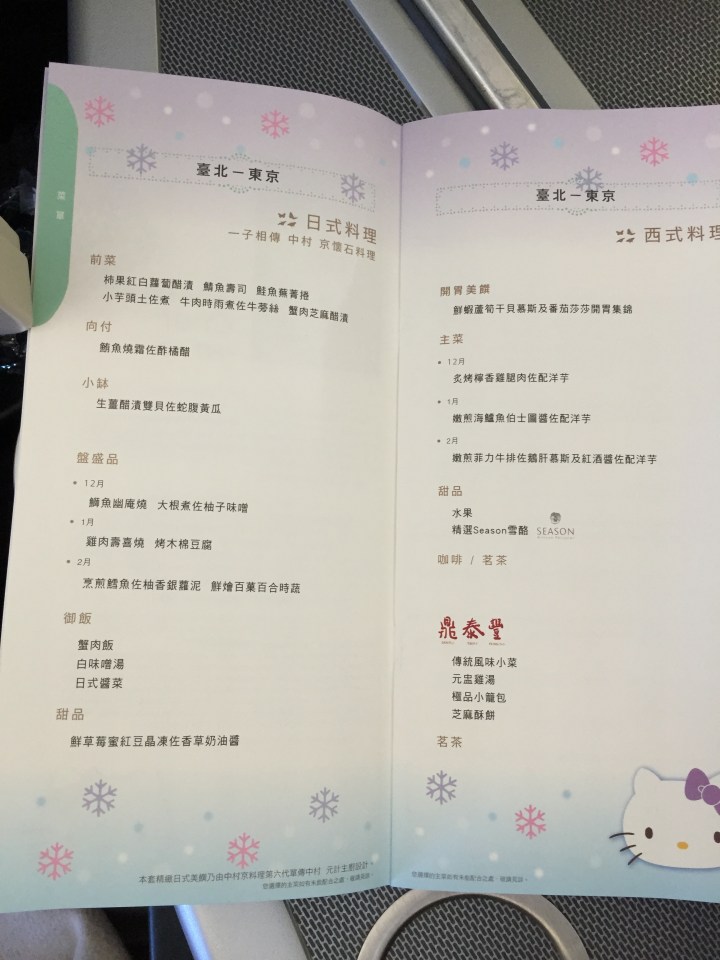 菜單
臺北－東京
日式料理
一子相傳 中村 京懷石料理
前菜
柿果紅白蘿蔔醋漬 鯖魚壽司 鮭魚蕪菁捲
小芋頭土佐煮 牛肉時雨煮佐牛蒡絲 蟹肉芝麻醋漬
向付
鮪魚燒霜佐酢橘醋
小缽
生薑醋漬雙貝佐蛇腹黃瓜
盤盛品
• 12月
鰤魚幽庵燒 大根煮佐柚子味噌
• 1月
雞肉壽喜燒 烤木棉豆腐
• 2月
烹煎鱈魚佐柚香銀蘿泥 鮮燴百菓百合時蔬
御飯
蟹肉飯
白味噌湯
日式醬菜
甜品
鮮草莓蜜紅豆晶凍佐香草奶油醬
本套精緻日式美饌乃由中村京料理第六代單傳中村 元計主廚設計。
您選擇的主菜如有未能配合之處，敬請見諒。
臺北－東京
西式料理
開胃美饌
鮮蝦蘆筍干貝慕斯及番茄莎莎開胃集錦
主菜
• 12月
炙烤檸香雞腿肉佐配洋芋
• 1月
嫩煎海鱸魚伯士圖醬佐配洋芋
• 2月
嫩煎菲力牛排佐鵝肝慕斯及紅酒醬佐配洋芋
甜品
水果
精選Season雪酪 SEASON
咖啡 / 茗茶
鼎泰豐
傳統風味小菜
元盅雞湯
極品小籠包
芝麻酥餅
茗茶
您選擇的主菜如有未能配合之處，敬請見諒。